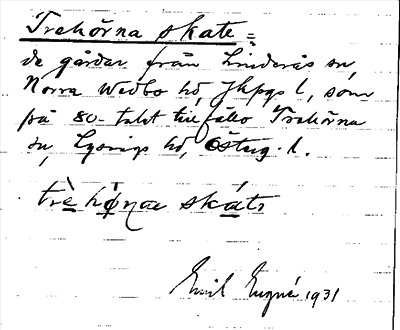 Trehörna skate =
de gårdar från Linderås sn,
Norra Wedbo hd, Jkpgs l, som
på 80-talet tillföllo Trehörna
sn, Lysings hd, Österg. l.
trè hö̱ṇae skáts
Emil 1931